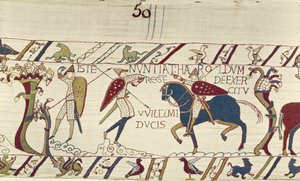 50
ISTE NUNTIAT HAROLDUM
REGE DE EXER
CITV
VVILLELMI
DVCIS